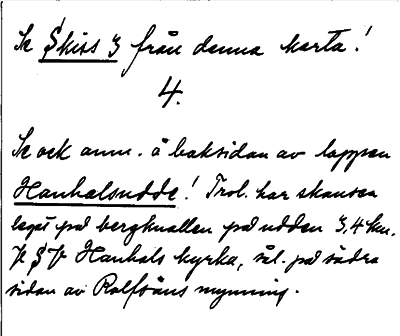 Se Skiss 3 från denna karta!
4.
Se ock anm. å baksidan av lappen
Hanhalsudde! Trol. har skansen
legat på bergknallen på udden 3,4 km.
Hanhals kyrka, sål. på södra
sidan av Rolfsåns mynning.